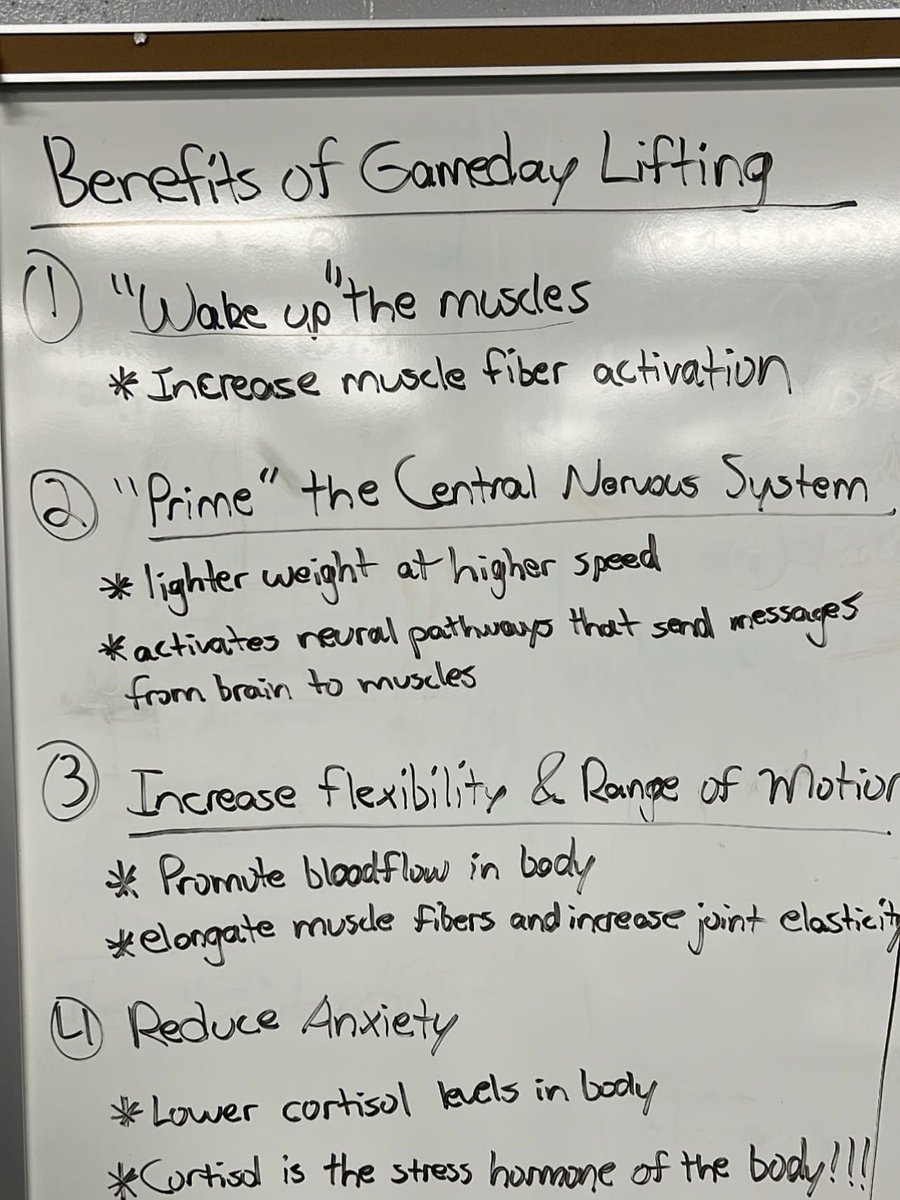 Benefits of Gameday Lifting
① "Wake up" the muscles
* Increase muscle fiber activation
② "Prime" the Central Nervous System
* lighter weight at higher speed
* activates neural pathways that send messages
from brain to muscles
③ Increase flexibility & Range of Motion
* Promote bloodflow in body
* elongate muscle fibers and increase joint elasticity
④ Reduce Anxiety
* Lower cortisol levels in body
* Cortisol is the stress hormone of the body!!!